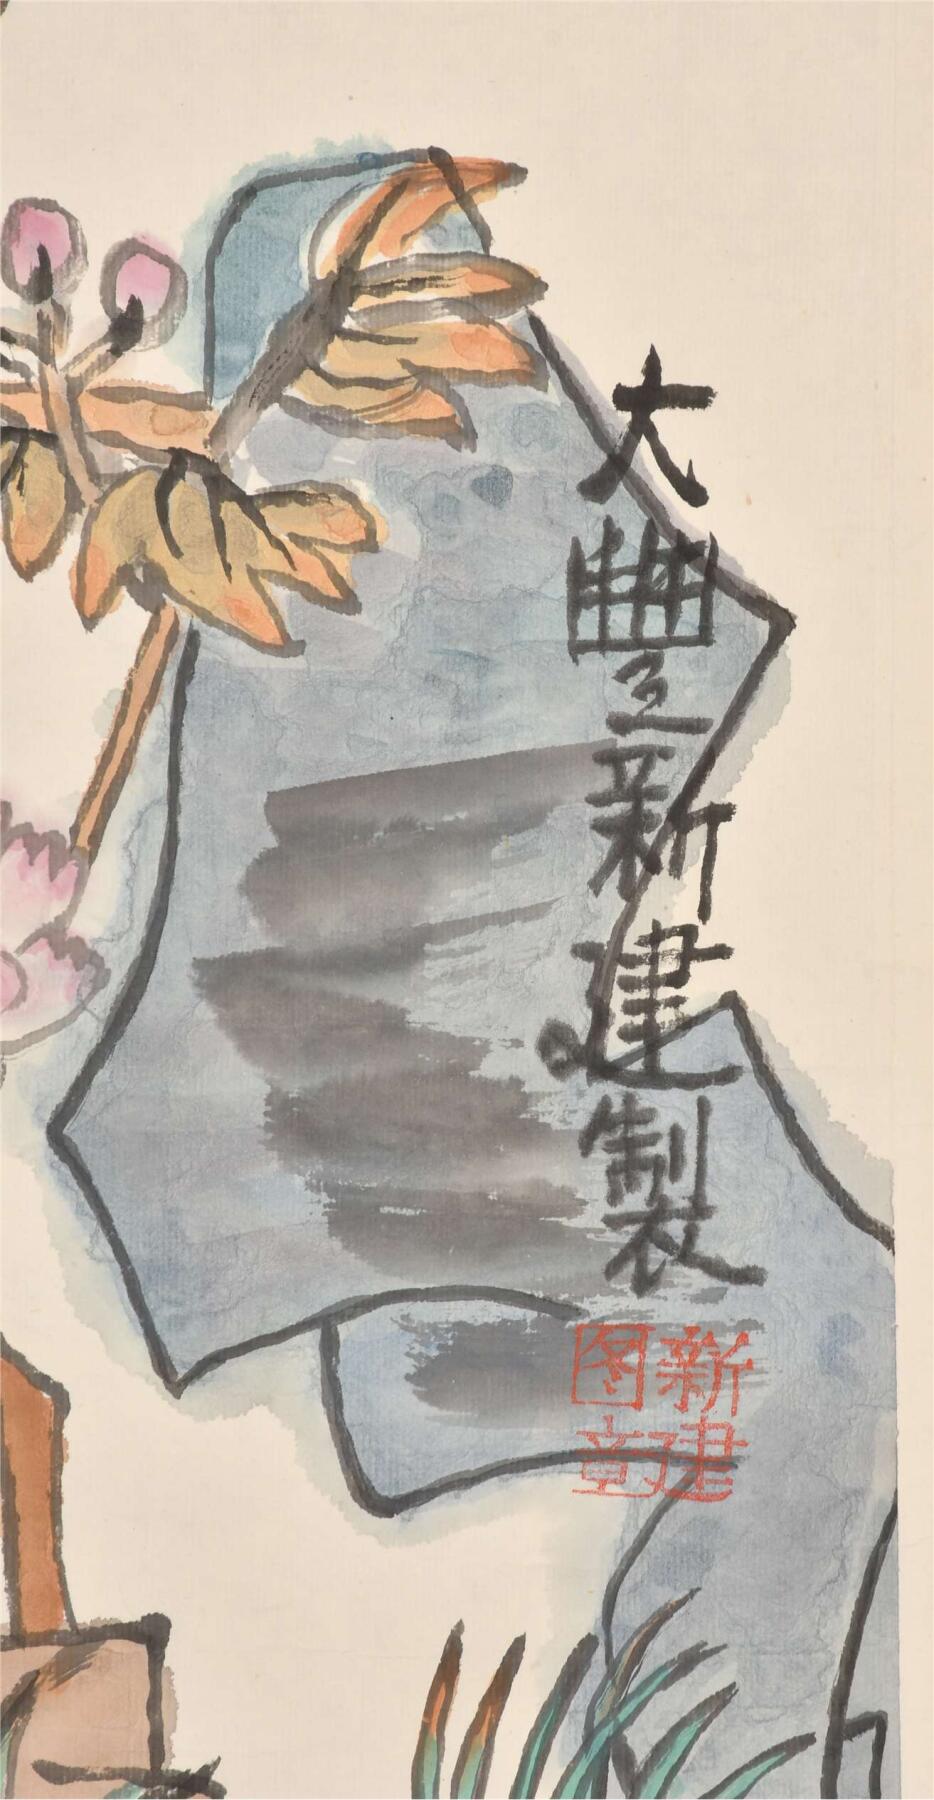 大豐新建製
新建
图章